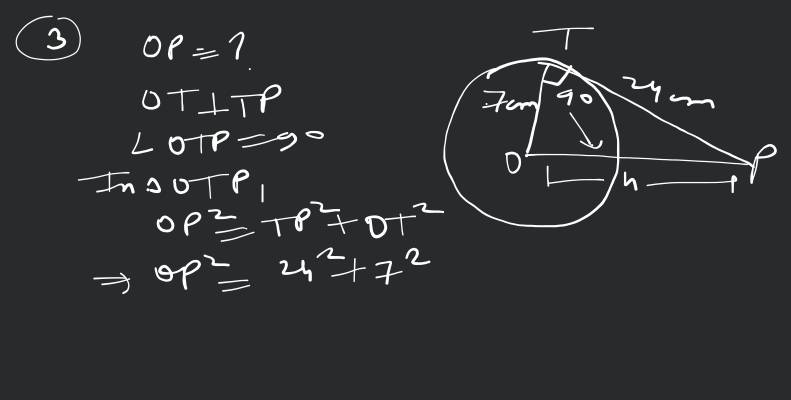 3
OP = ?
OT ⊥ TP
∠ OTP = 90
In △ OTP,
OP² = TP² + OT²
⇒ OP² = 24² + 7²
T
7cm
90
24 cm
O
h
P